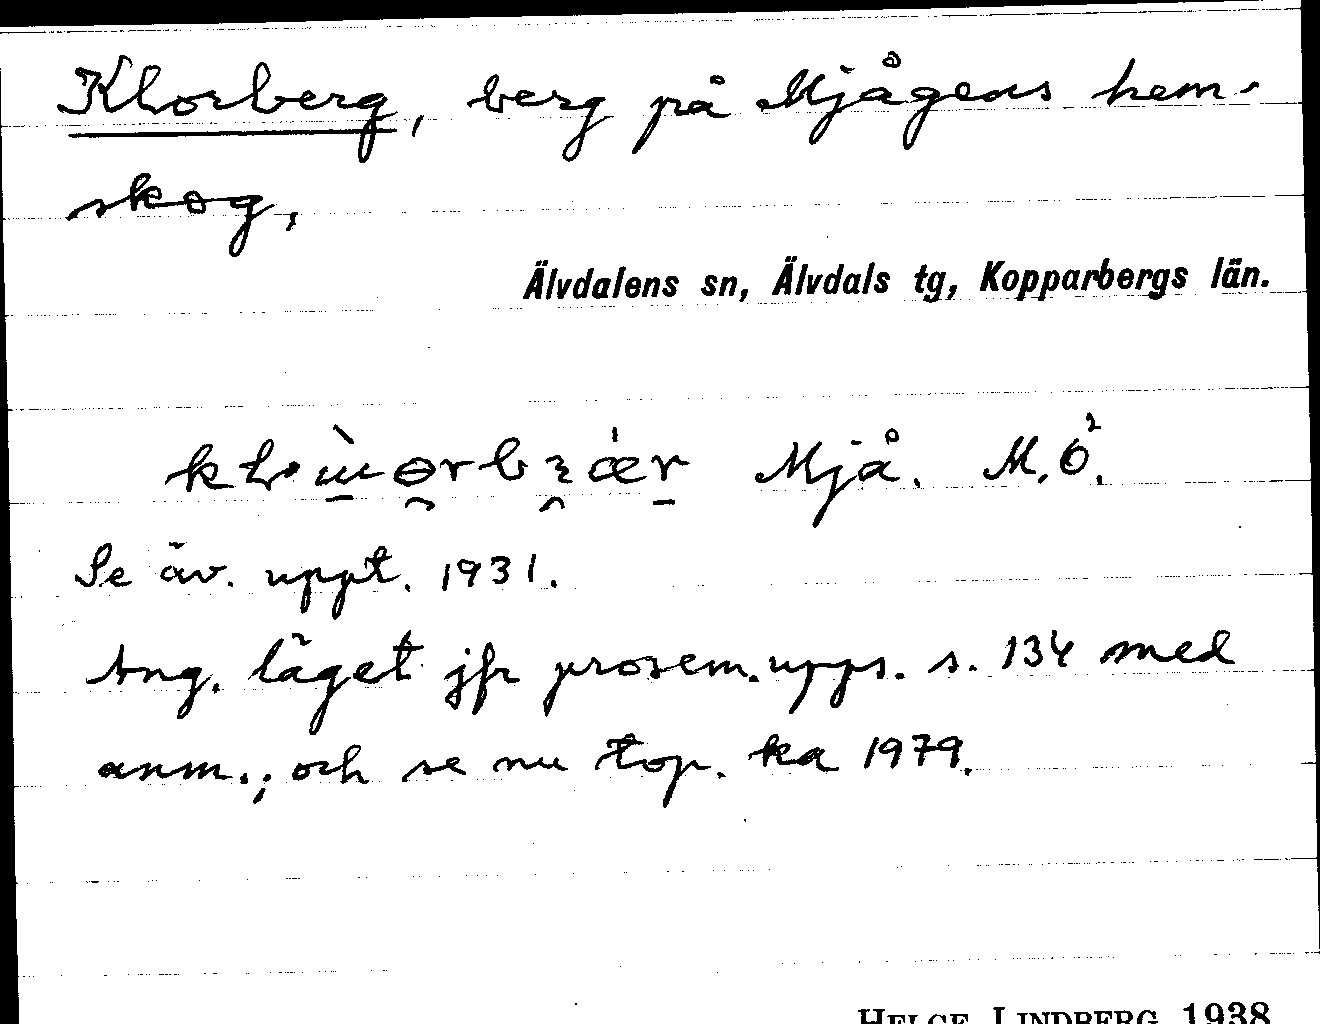 Klorberg, berg på Mjågens hem-
skog,
Älvdalens sn, Älvdals tg, Kopparbergs län.
Mjå. M.Ö².
Se äv. uppt. 1931.
Ang. läget jfr prosem.upps. s. 134 med
anm.; och se nu top. ka 1979.
HELGE LINDBERG 1938